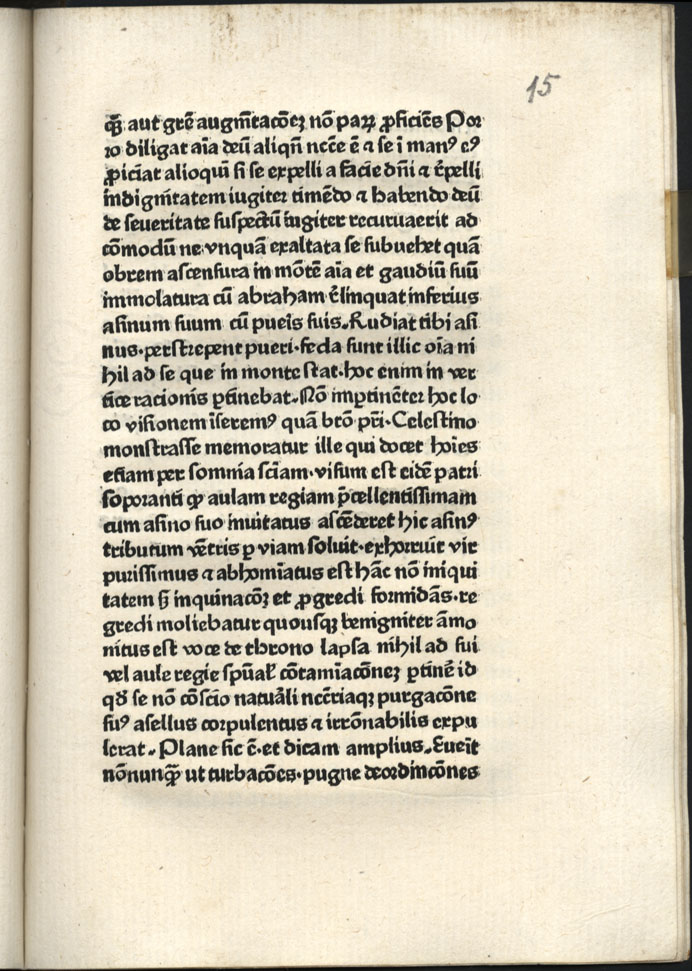 15
qꝫ̄ aut grē augm̄tacōeꝫ nō paꝝ ꝓficiēs Por
ro diligat aīa deū aliqn̄ ncēe ē ⁊ se ī manꝰ eꝰ
ꝓiciat alioquī si se expelli a facie dn̄i ⁊ r̄pelli
indignitatem iugiter timēdo ⁊ habendo deū
de seueritate suspectū iugiter recuruaerit ad
cōmodū ne vnquā exaltata se subuehet quā
obrem ascensura in mōtē aīa et gaudiū suū
immolatura cū abraham r̄linquat inferius
asinum suum cū pueīs suis. Rudiat tibi asi
nus. perstrepent pueri. fecla sunt illic oīa ni
hil ad se que in monte stat. hoc enim in ver
tice racionis ꝑtinebat. Nō imꝑtinēter hoc lo
co visionem īseremꝰ quā brō pr̄i. Celestino
monstrasse memoratur ille qui docet hoīes
etiam per somnia sciam. visum est eidē patri
soporanti ꝙ aulam regiam p̄cellentissimam
cum asino suo inuitatus ascēderet hic asinꝰ
tributum vētris ꝑ viam soluit. exhorruit vir
purissimus ⁊ abhomīatus est hāc nō iniqui
tatem sꝫ inquinacōꝫ et ꝓgredi formidās. re
gredi moliebatur quousqꝫ benigniter āmo
nitus est voce de throno lapsa nihil ad sui
vel aule regie spūal' cōtamīacōneꝫ ꝑtinē id
qd̄ se nō cōscio natuāli ncēriaqꝫ purgacōne
suꝰ asellus corpulentus ⁊ irrōnabilis expu
lerat. Plane sic ē. et dicam amplius. Eueīt
nōnunqꝫ̄ ut turbacōes. pugne deordincōnes